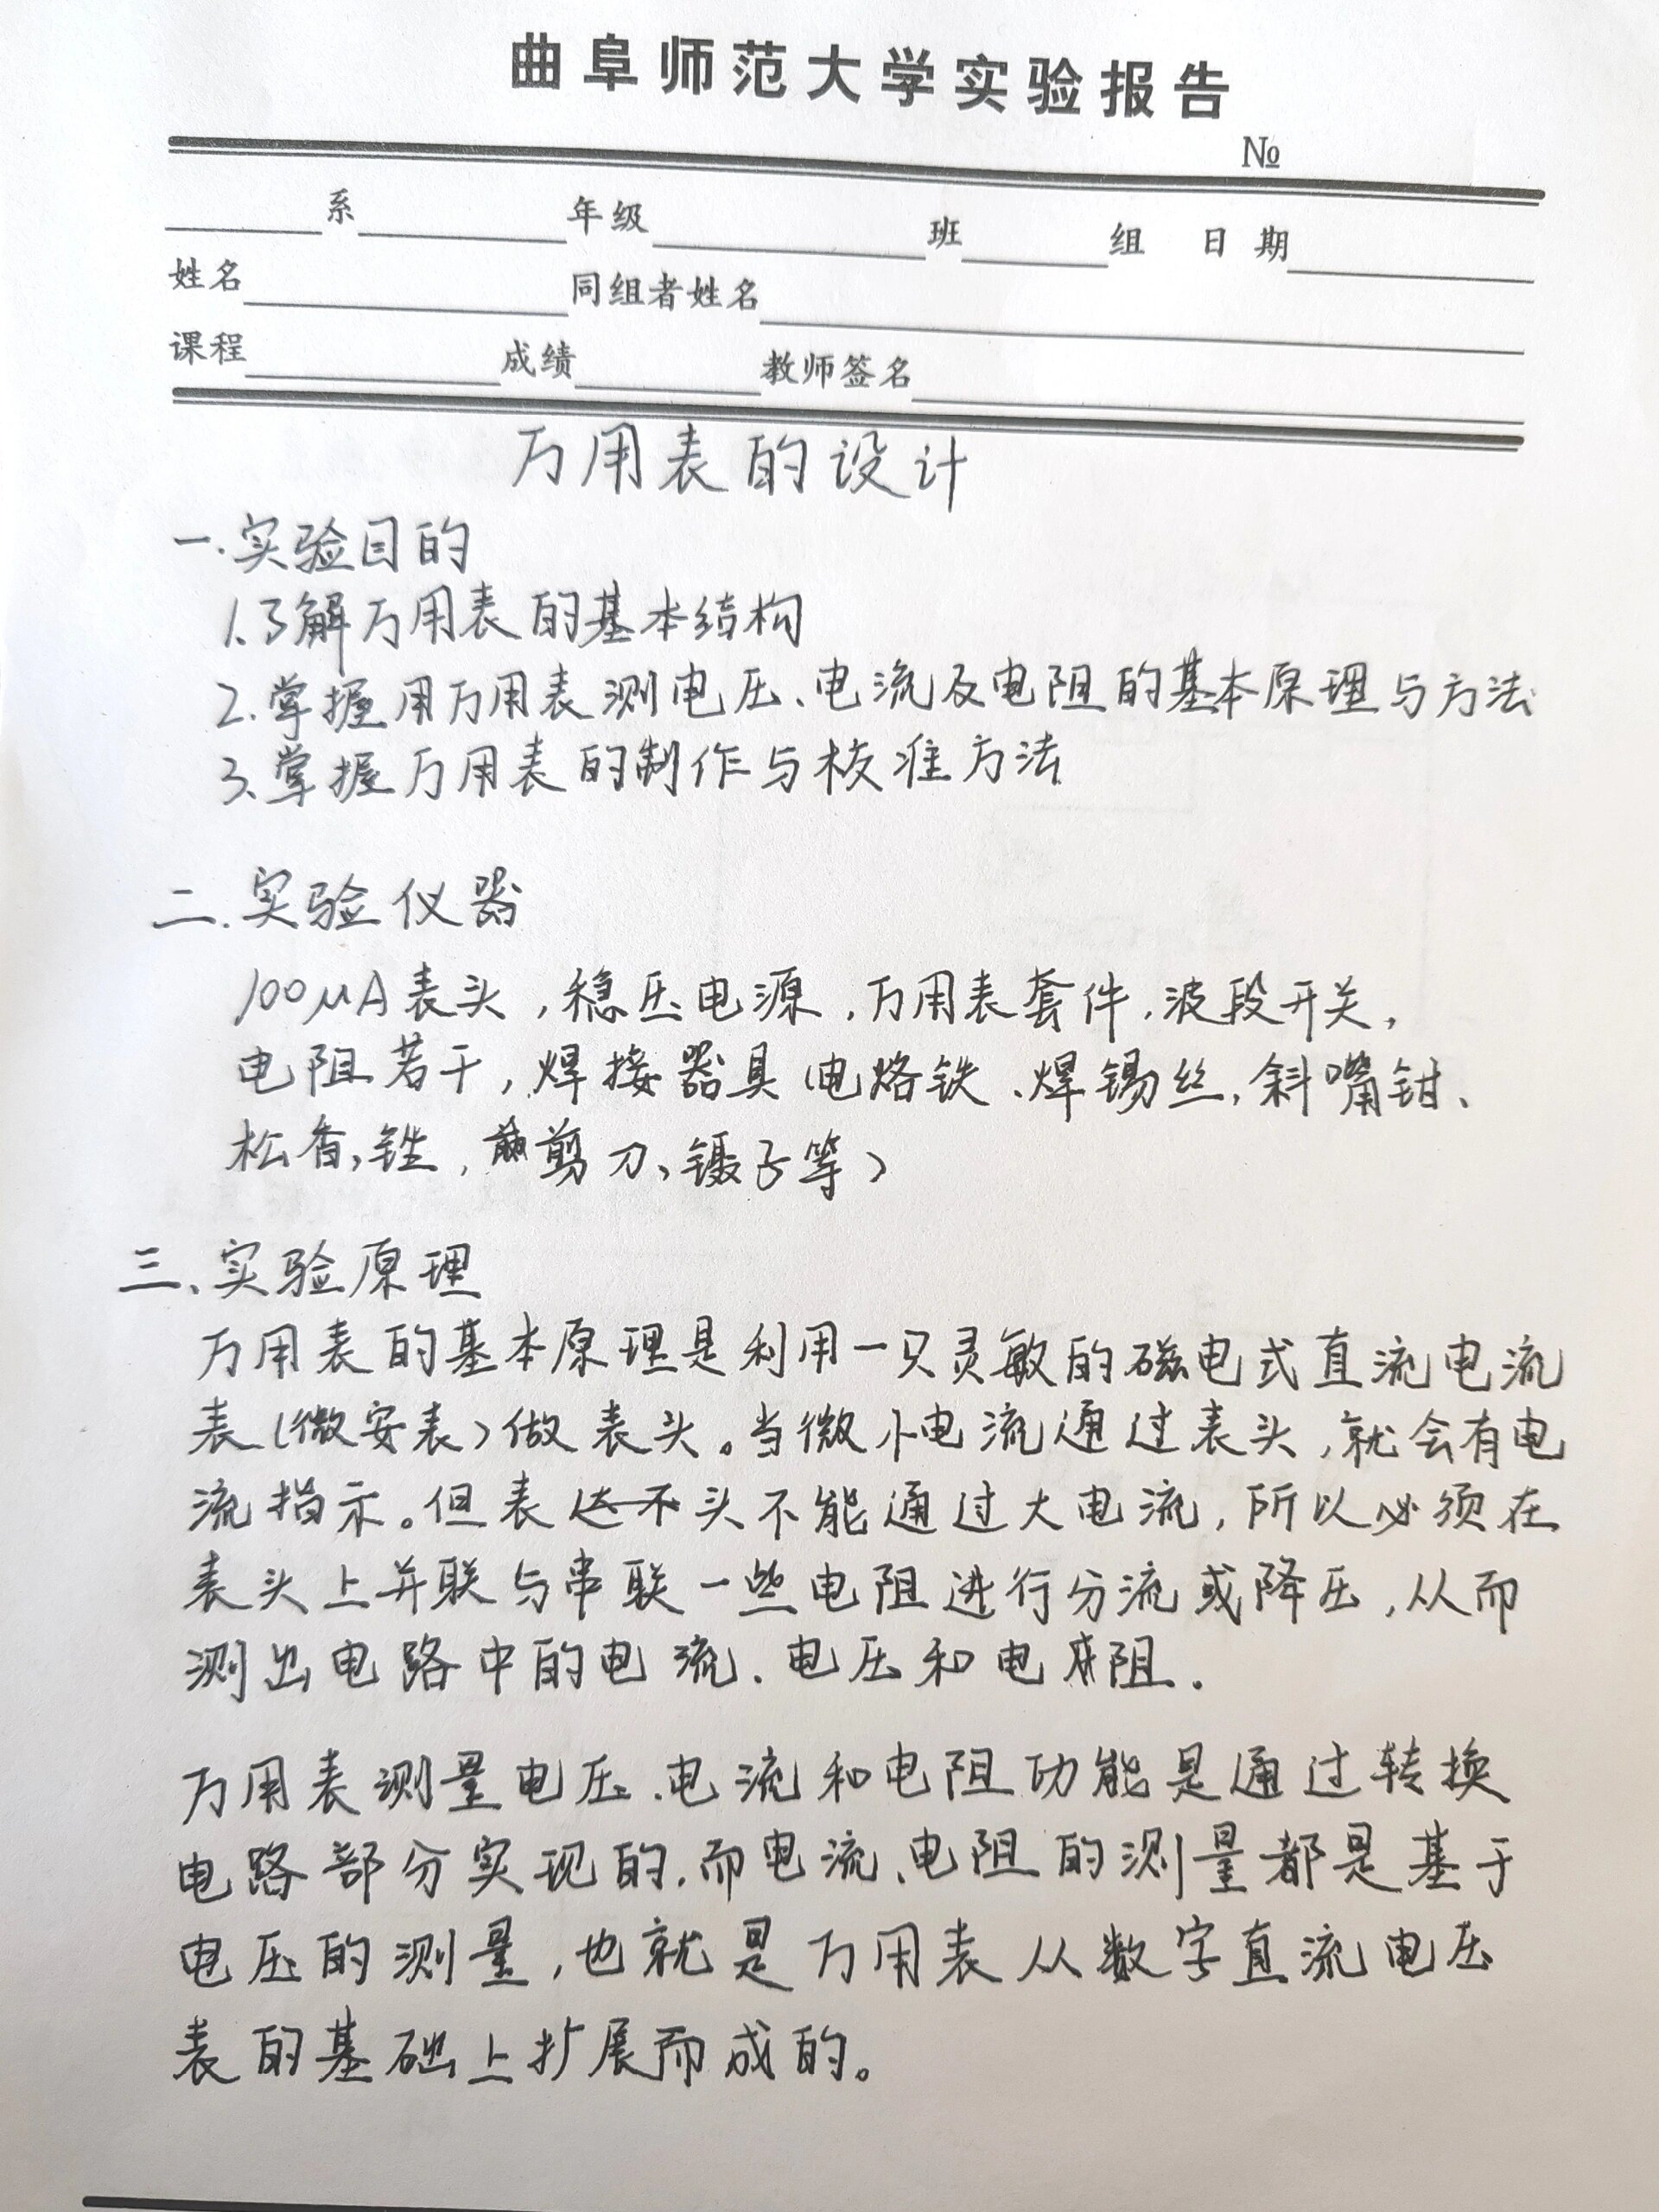 曲阜师范大学实验报告
№
系 年级 班 组 日期
姓名 同组者姓名
课程 成绩 教师签名
万用表的设计
一.实验目的
1.了解万用表的基本结构
2.掌握用万用表测电压、电流及电阻的基本原理与方法
3.掌握万用表的制作与校准方法
二.实验仪器
100μA表头,稳压电源,万用表套件,波段开关,
电阻若干,焊接器具(电烙铁、焊锡丝,斜嘴钳、
松香,锉,剪刀,镊子等)
三、实验原理
万用表的基本原理是利用一只灵敏的磁电式直流电流
表(微安表)做表头。当微小电流通过表头,就会有电
流指示。但表头不能通过大电流,所以必须在
表头上并联与串联一些电阻进行分流或降压,从而
测出电路中的电流、电压和电阻.
万用表测量电压、电流和电阻功能是通过转换
电路部分实现的,而电流、电阻的测量都是基于
电压的测量,也就是万用表从数字直流电压
表的基础上扩展而成的。